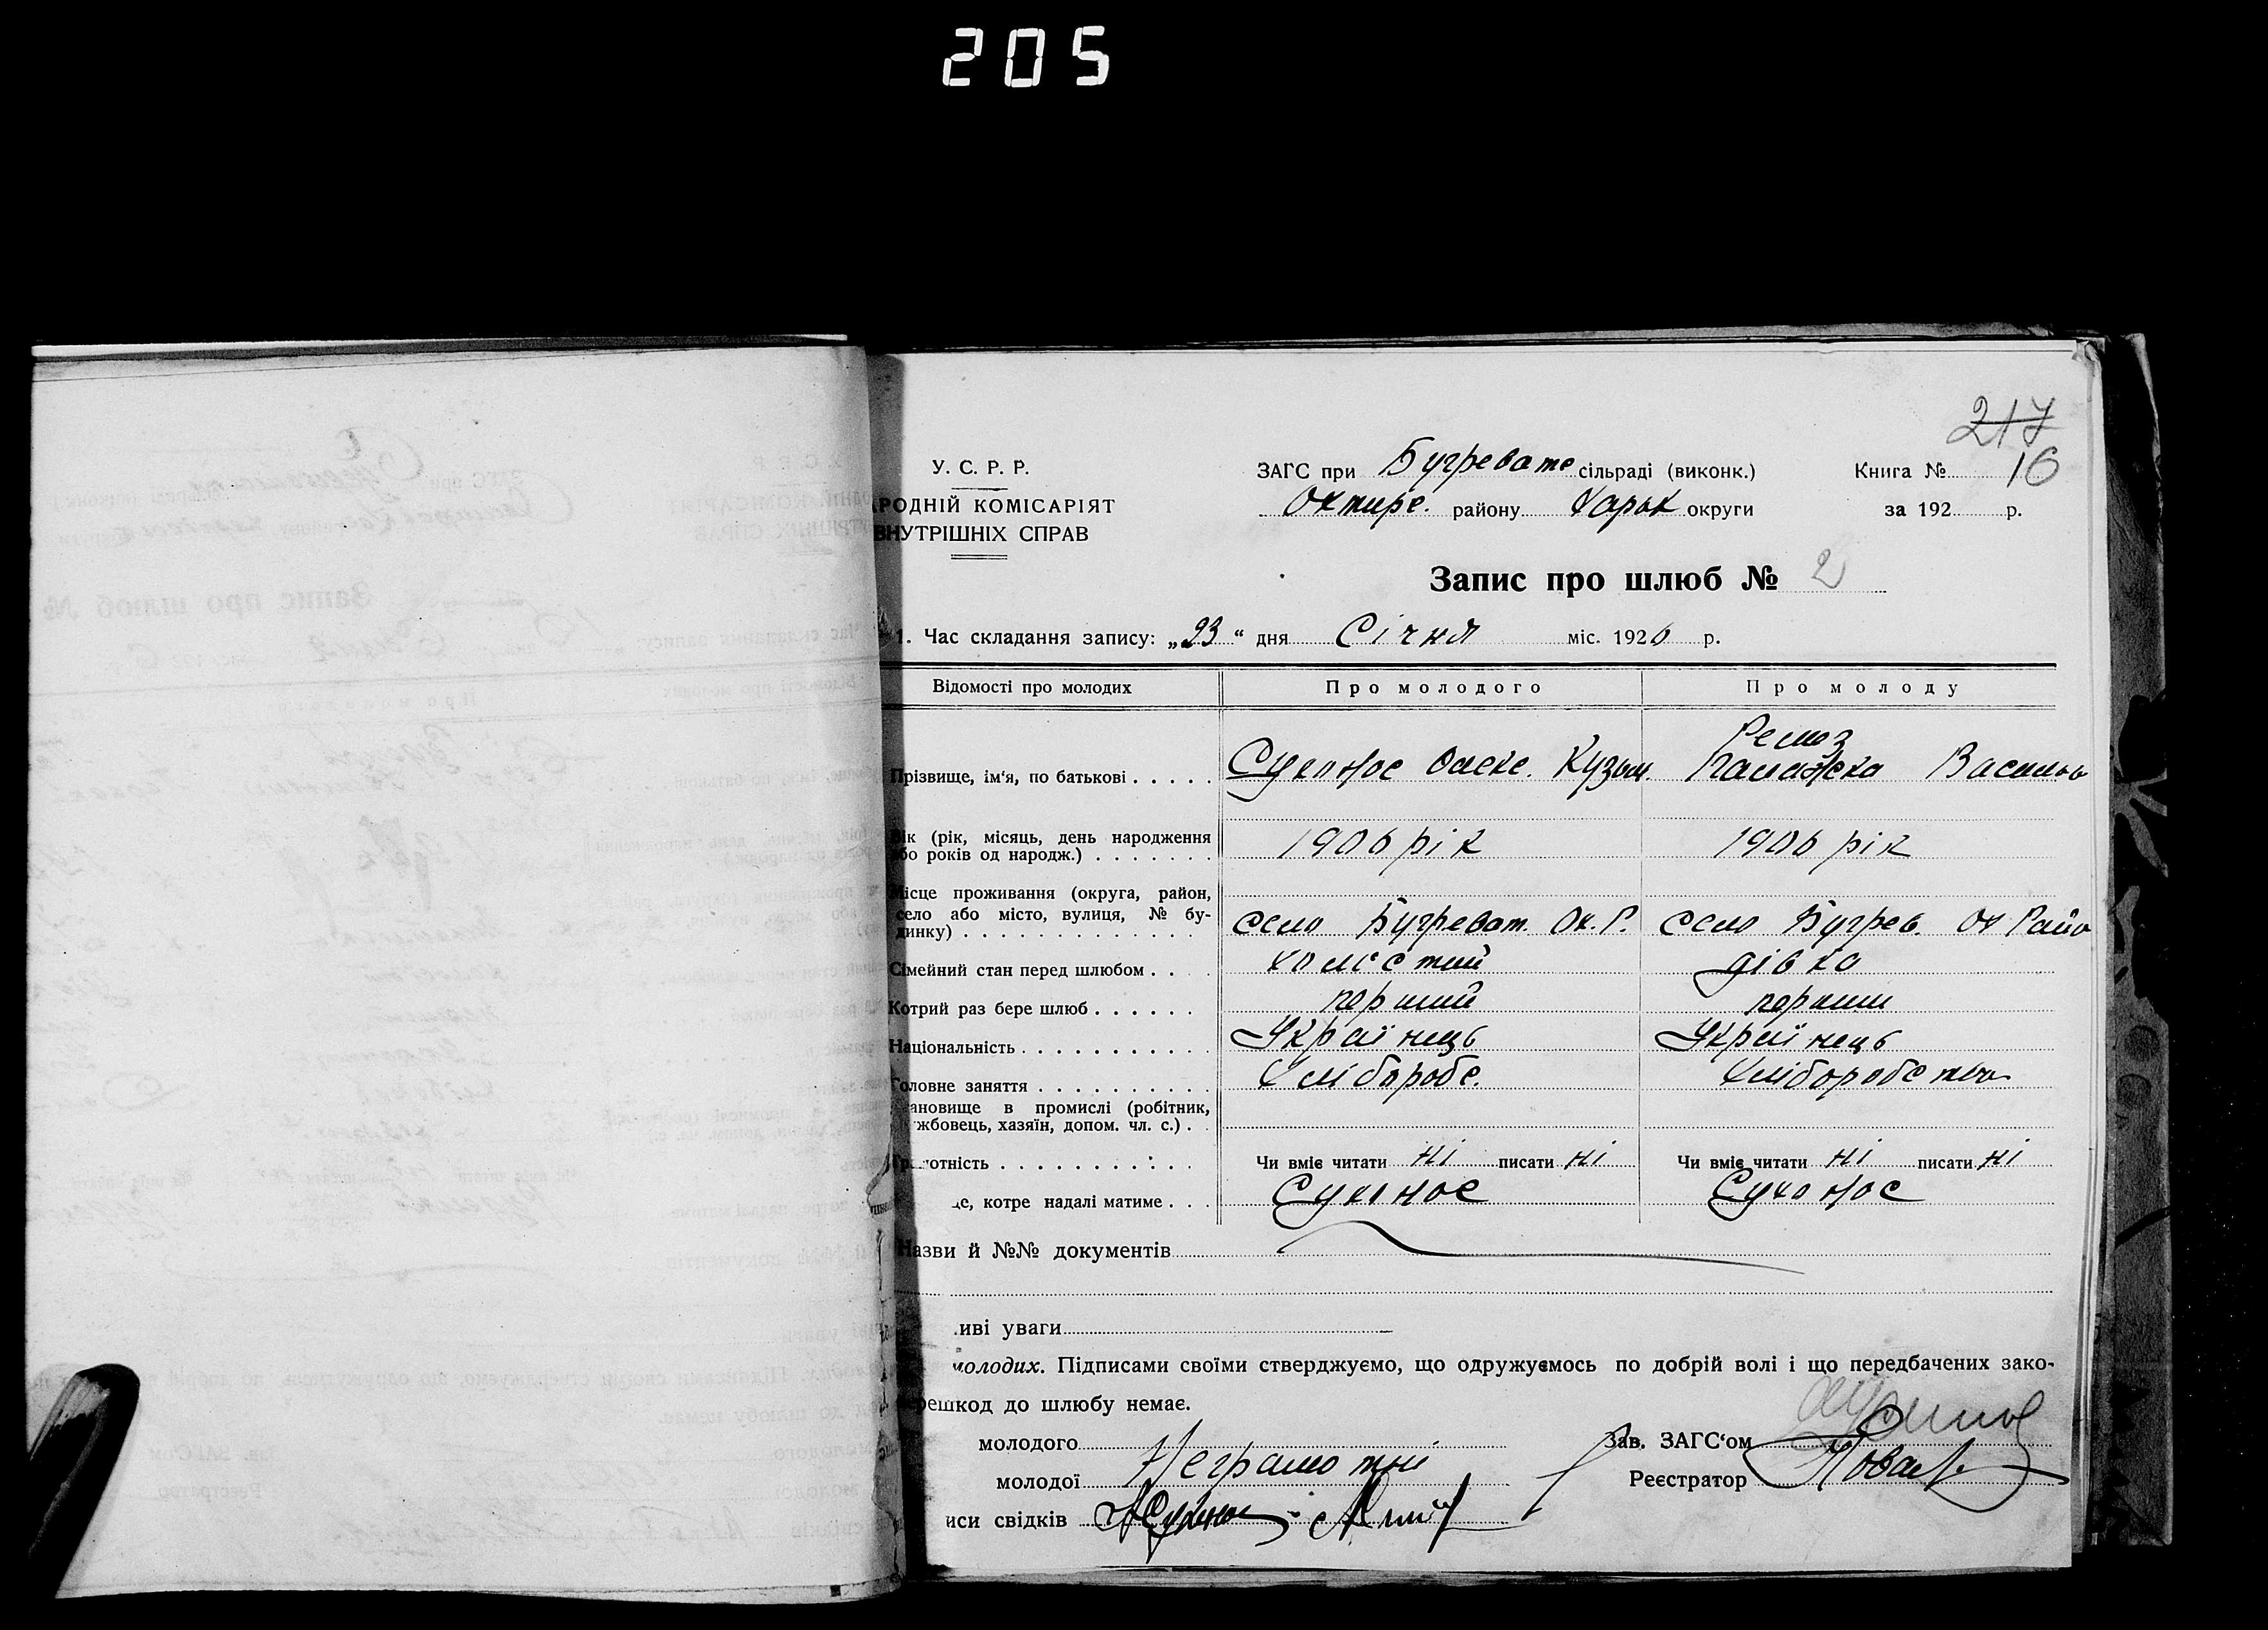 205
217
У. С. Р. Р. ЗАГС при Бугревате сільраді (виконк.) Книга № 16
РОДНІЙ КОМІСАРІЯТ Охтирс. району Харьк округи за 192 р.
ВНУТРІШНІХ СПРАВ
Запис про шлюб № 2
1. Час складання запису: „23“ дня Січня міс. 1926 р.
Відомості про молодих Про молодого Про молоду
Прізвище, ім‘я, по батькові . . . . . Сухонос Олекс. Кузьм Василь
Вік (рік, місяць, день народження
або років од народж.) . . . . . . . 1906 рік 1906 рік
Місце проживання (округа, район,
село або місто, вулиця, № бу-
динку) . . . . . . . . . . . . село Бугреват. Ох. Р. село Бугрев. Ох Райо
Сімейний стан перед шлюбом . . . . холостий дівка
Котрий раз бере шлюб . . . . . . перший перший
Національність . . . . . . . . . . . Українець Українець
Головне заняття . . . . . . . . . . Хлібороб. Хліборобство
ановище в промислі (робітник,
жбовець, хазяїн, допом. чл. с.) . .
Грамотність . . . . . . . . . . . Чи вміє читати ні писати ні Чи вміє читати ні писати ні
це, котре надалі матиме . . . Сухонос Сухонос
Назви й №№ документів
иві уваги
молодих. Підписами своїми стверджуємо, що одружуємось по добрій волі і що передбачених зако-
решкод до шлюбу немає.
молодого Неграмотні Зав. ЗАГС‘ом
молодої Реєстратор
иси свідків